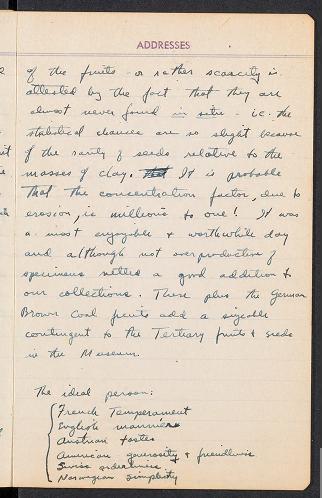 ADDRESSES
of the fruits - or rather scarcity is
attested by the fact that they are
almost never found in situ - i.e. the
statistical chances are so slight because
of the rarity of seeds relative to the
masses of clay. It is probable
that the concentration factor, due to
erosion, is millions to one! It was
a most enjoyable & worthwhile day
and although not overproductive of
specimens netted a good addition to
our collections. These plus the German
Brown Coal fruits add a sizeable
contingent to the Tertiary fruits & seeds
in the Museum.
The ideal person:
French Temperament
English manners
Austrian tastes
American generosity & friendliness
Swiss orderliness
Norwegian simplicity